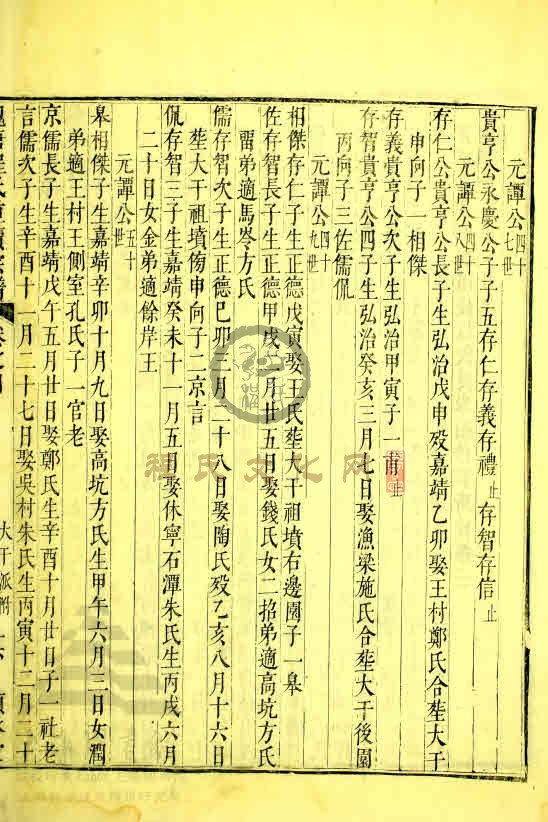 元譚公四十七世
貴亨公永慶公子子五存仁存義存禮止存智存信止
元譚公四十八世
存仁公貴亨公長子生弘治戊申殁嘉靖乙卯娶王村鄭氏合塟大干
申向子一相傑
存義貴亨公次子生弘治甲寅子一甫止
存智貴亨公四子生弘治癸亥三月七日娶漁梁施氏合塟大干後園
丙向子三佐儒侃
元譚公四十九世
相傑存仁子生正德戊寅娶王氏塟大干祖墳右邊園子一皋
佐存智長子生正德甲戌二月廿五日娶錢氏女二招弟適高坑方氏
畱弟適馬岺方氏
儒存智次子生正德巳卯三月二十八日娶陶氏殁乙亥八月十六日
塟大干祖墳傍申向子二京言
侃存智三子生嘉靖癸未十一月五日娶休寧石潭朱氏生丙戌六月
二十日女金弟適餘岸王
元譚公五十世
皋相傑子生嘉靖辛卯十月九日娶高坑方氏生甲午六月三日女潤
弟適王村王側室孔氏子一官老
京儒長子生嘉靖戊午五月廿日娶鄭氏生辛酉十月廿日子一社老
言儒次子生辛酉十一月二十七日娶吳村朱氏生丙寅十二月二十
大干派附
程氏文化网